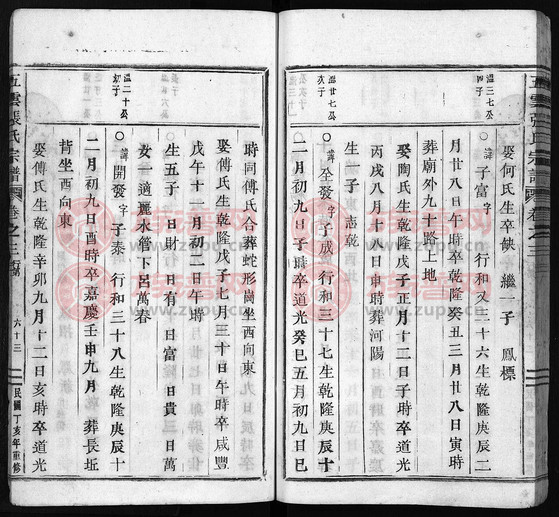 五雲張氏宗譜 卷之三
溫三七公
四子
娶何氏生卒缺 繼一子 鳳標
○諱子富字 行和又三十六生乾隆庚辰二
月廿八日午時卒乾隆癸丑三月廿八日寅時
葬廟外九十路上地
娶陶氏生乾隆戊子正月十二日子時卒道光
丙戌八月十八日申時葬河陽
生一子 志乾
溫廿七公
次子
○諱全發字子成 行和三十七生乾隆庚辰十
二月初九日子時卒道光癸巳五月初九日巳
時同傅氏合葬蛇形崗坐西向東
娶傅氏生乾隆戊子七月三十日午時卒咸豐
戊午十一月初二日午時
生五子 日財 日有 日富 日貴 日萬
女一 適麗水管下呂萬春
溫二十公
初子
○諱開發字子泰 行和三十八生乾隆庚辰十
二月初九日酉時卒嘉慶壬申九月 葬長坵
背坐西向東
娶傅氏生乾隆辛卯九月十二日亥時卒道光
五雲張氏宗譜 卷之三 六十三 民國丁亥年重修
族譜網
www.zupu.cn